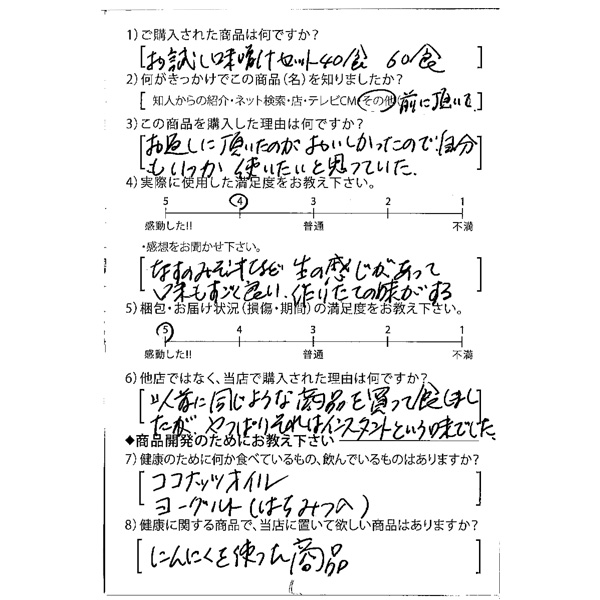 1)ご購入された商品は何ですか?
[お試し味噌汁セット40食 60食]
2)何がきっかけでこの商品(名)を知りましたか?
[ 知人からの紹介・ネット検索・店・テレビCM・その他( 前に頂いた ]
3)この商品を購入した理由は何ですか?
[お返しに頂いたのがおいしかったので自分
もいつか 使いたいと思っていた.]
4)実際に使用した満足度をお教え下さい。
5 4 3 2 1
感動した!! 普通 不満
・感想をお聞かせ下さい。
[なすのみそ汁など 生の感じがあって
味もすごく良い、作りたての味がする]
5)梱包・お届け状況(損傷・期間)の満足度をお教え下さい。
5 4 3 2 1
感動した!! 普通 不満
6)他店ではなく、当店で購入された理由は何ですか?
[以前に同じような商品を買って食しまし
たが、やっぱりそれはインスタントという味でした.]
◆商品開発のためにお教え下さい
7)健康のために何か食べているもの、飲んでいるものはありますか?
[ココナッツオイル
ヨーグルト(はちみつ入)]
8)健康に関する商品で、当店に置いて欲しい商品はありますか?
[にんにくを使った商品]